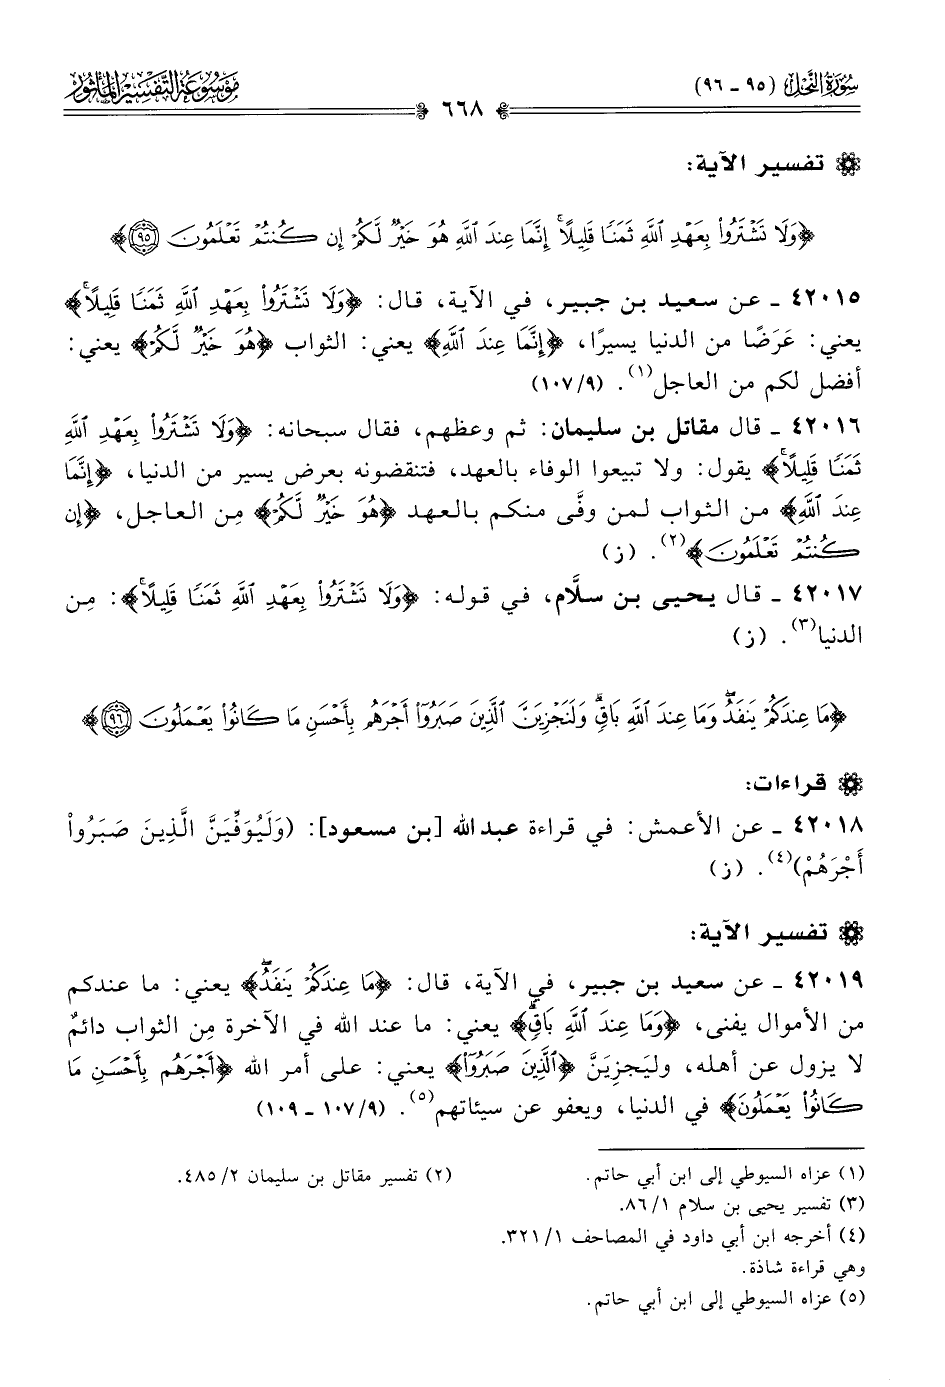 سُورَةُ النَّحْلِ (٩٥ - ٩٦)
مَوْسُوعَةُ التَّفْسِيرِ المَأْثُورِ
٦٦٨
تفسير الآية:
﴿وَلَا تَشْتَرُواْ بِعَهْدِ ٱللَّهِ ثَمَنًا قَلِيلًاۚ إِنَّمَا عِندَ ٱللَّهِ هُوَ خَيْرٌ لَّكُمْ إِن كُنتُمْ تَعْلَمُونَ ٩٥﴾
٤٢٠١٥ - عن سعيد بن جبير، في الآية، قال: ﴿وَلَا تَشْتَرُواْ بِعَهْدِ ٱللَّهِ ثَمَنًا قَلِيلًاۚ﴾
يعني: عَرَضًا من الدنيا يسيرًا، ﴿إِنَّمَا عِندَ ٱللَّهِ﴾ يعني: الثواب ﴿هُوَ خَيْرٌ لَّكُمْ﴾ يعني:
أفضل لكم من العاجل(١). (١٠٧/٩)
٤٢٠١٦ - قال مقاتل بن سليمان: ثم وعظهم، فقال سبحانه: ﴿وَلَا تَشْتَرُواْ بِعَهْدِ ٱللَّهِ
ثَمَنًا قَلِيلًاۚ﴾ يقول: ولا تبيعوا الوفاء بالعهد، فتنقضونه بعرض يسير من الدنيا، ﴿إِنَّمَا
عِندَ ٱللَّهِ﴾ من الثواب لمن وفَّى منكم بالعهد ﴿هُوَ خَيْرٌ لَّكُمْ﴾ مِن العاجل، ﴿إِن
كُنتُمْ تَعْلَمُونَ﴾(٢). (ز)
٤٢٠١٧ - قال يحيى بن سلَّام، في قوله: ﴿وَلَا تَشْتَرُواْ بِعَهْدِ ٱللَّهِ ثَمَنًا قَلِيلًاۚ﴾: مِن
الدنيا(٣). (ز)
﴿مَا عِندَكُمْ يَنفَدُۖ وَمَا عِندَ ٱللَّهِ بَاقٍۗ وَلَنَجْزِيَنَّ ٱلَّذِينَ صَبَرُوٓاْ أَجْرَهُم بِأَحْسَنِ مَا كَانُواْ يَعْمَلُونَ ٩٦﴾
قراءات:
٤٢٠١٨ - عن الأعمش: في قراءة عبد الله [بن مسعود]: (وَلَيُوَفِّيَنَّ الَّذِينَ صَبَرُواْ
أَجْرَهُمْ)(٤). (ز)
تفسير الآية:
٤٢٠١٩ - عن سعيد بن جبير، في الآية، قال: ﴿مَا عِندَكُمْ يَنفَدُۖ﴾ يعني: ما عندكم
من الأموال يفنى، ﴿وَمَا عِندَ ٱللَّهِ بَاقٍۗ﴾ يعني: ما عند الله في الآخرة مِن الثواب دائمٌ
لا يزول عن أهله، وليَجزِيَنَّ ﴿ٱلَّذِينَ صَبَرُوٓاْ﴾ يعني: على أمر الله ﴿أَجْرَهُم بِأَحْسَنِ مَا
كَانُواْ يَعْمَلُونَ﴾ في الدنيا، ويعفو عن سيئاتهم(٥). (١٠٧/٩ - ١٠٩)
(١) عزاه السيوطي إلى ابن أبي حاتم. (٢) تفسير مقاتل بن سليمان ٢/ ٤٨٥.
(٣) تفسير يحيى بن سلام ١/ ٨٦.
(٤) أخرجه ابن أبي داود في المصاحف ١/ ٣٢١.
وهي قراءة شاذة.
(٥) عزاه السيوطي إلى ابن أبي حاتم.